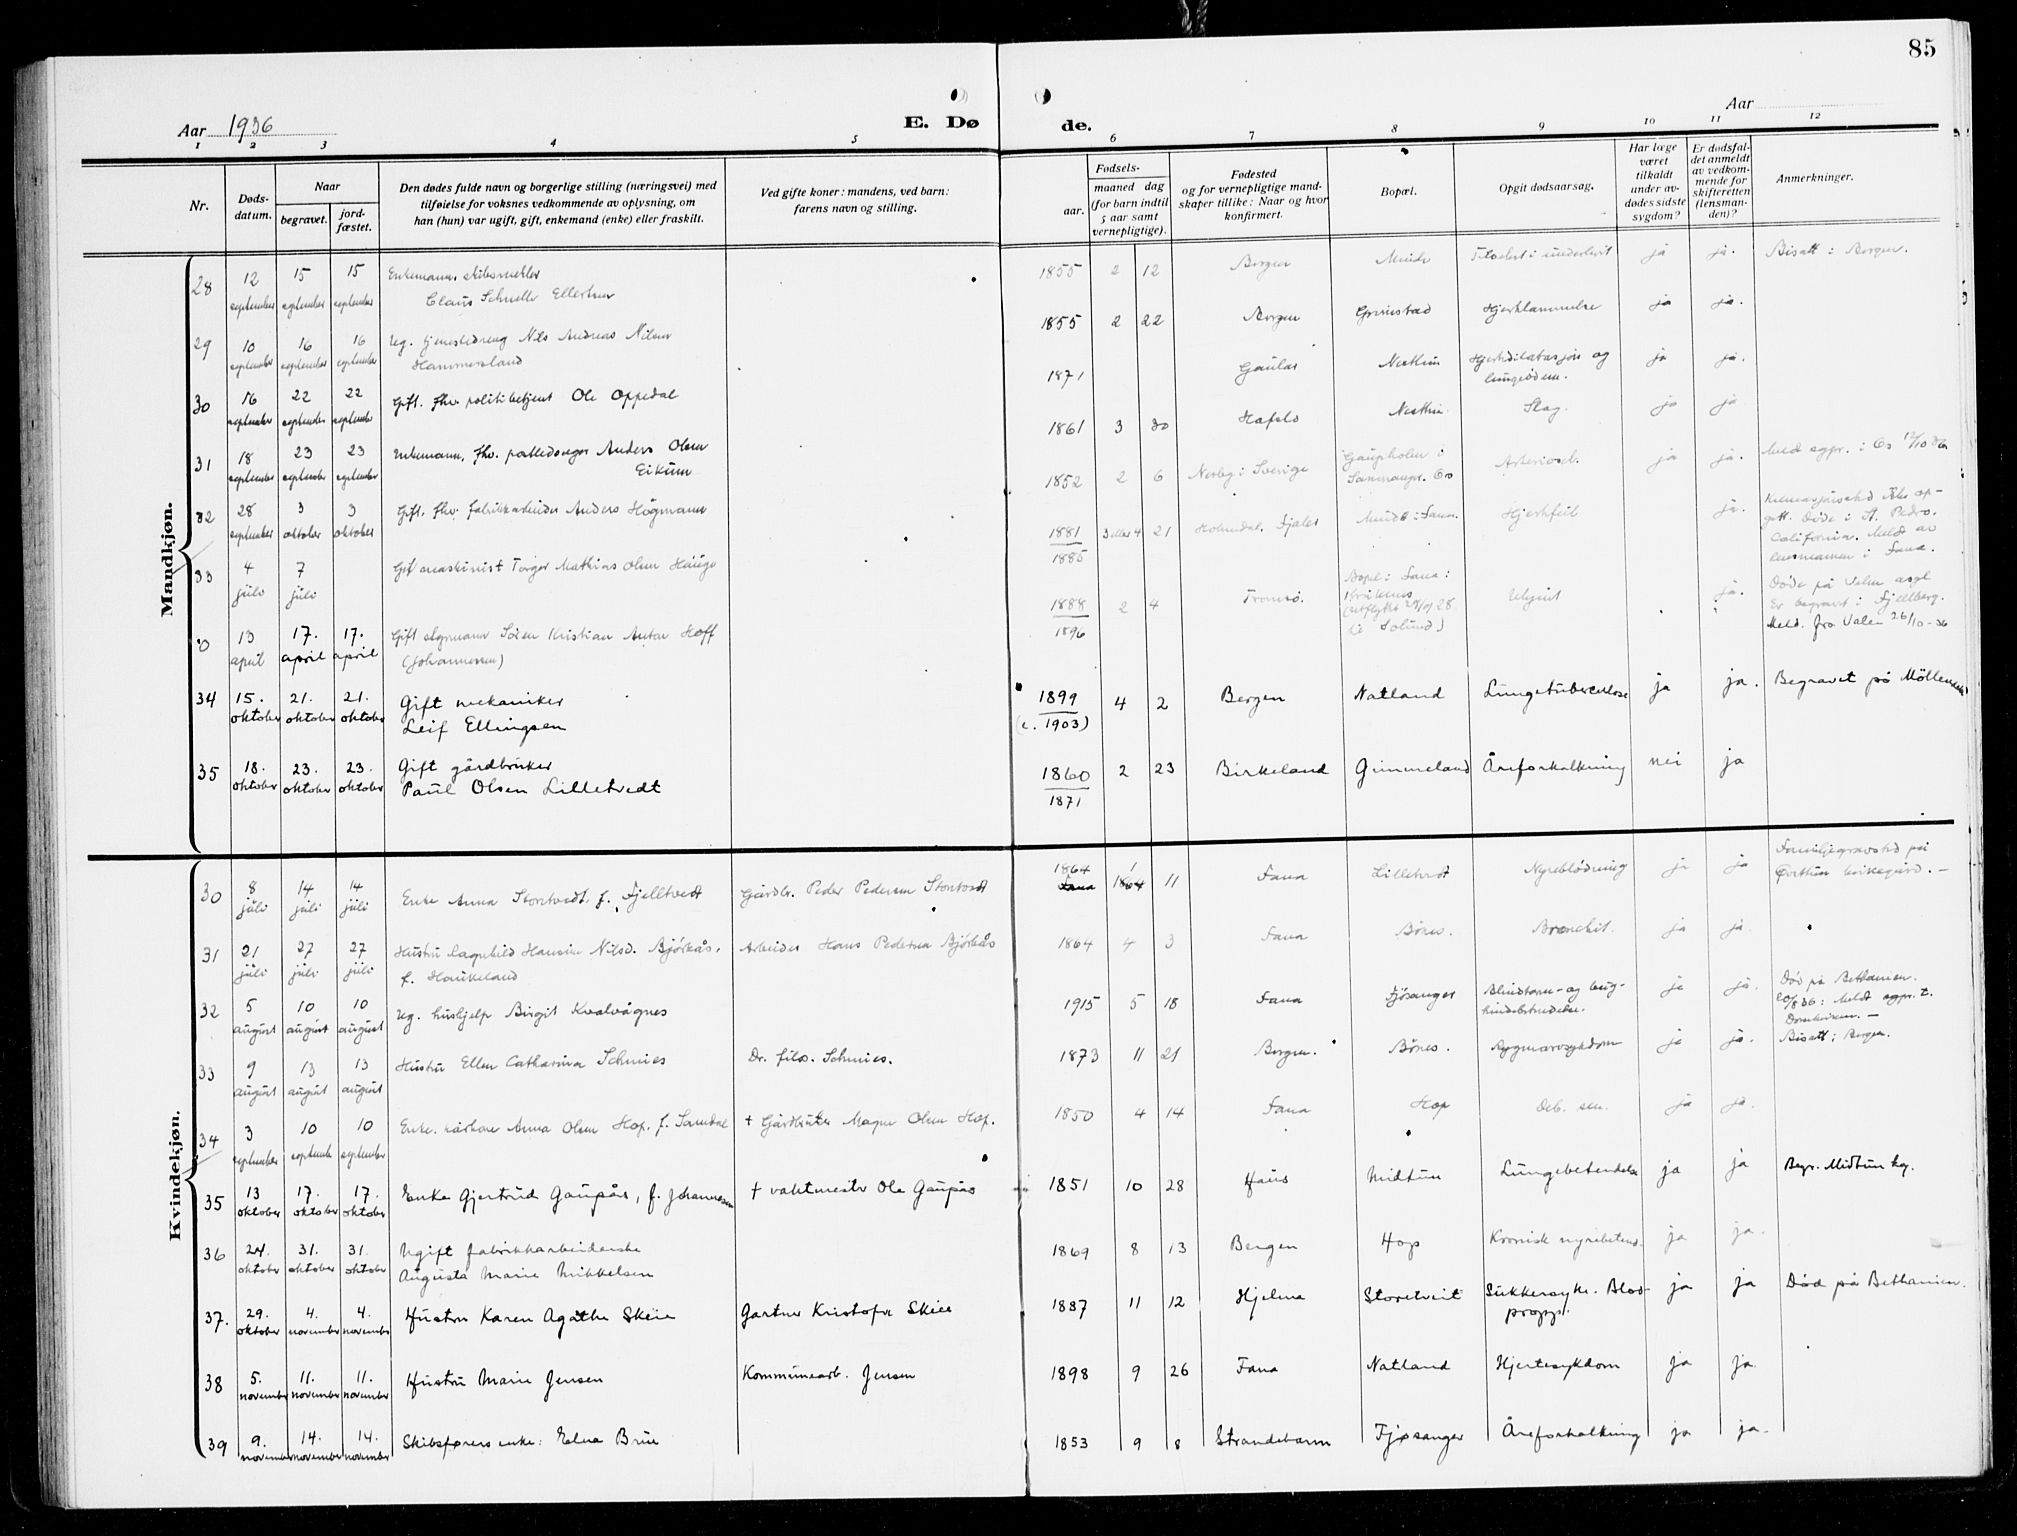 85
Aar 1936
E. Dø
de.
Aar
1 2 3 4 5 6 7 8 9 10 11 12
Nr.
Døds-
datum.
Naar
begravet.
jord-
fæstet.
Den dødes fulde navn og borgerlige stilling (næringsvei) med
tilføielse for voksnes vedkommende av oplysning, om
han (hun) var ugift, gift, enkemand (enke) eller fraskilt.
Ved gifte koner: mandens, ved barn:
farens navn og stilling.
Fødsels-
aar.
maaned dag
(for barn indtil
5 aar samt
vernepligtige).
Fødested
og for vernepligtige mand-
skaper tillike: Naar og hvor
konfirmert.
Bopæl.
Opgit dødsaarsag.
Har læge
været
tilkaldt
under av-
dødes sidste
sygdom?
Er dødsfal-
det anmeldt
av vedkom-
mende for
skifteretten
(lensman-
den)?
Anmerkninger.
Mandkjøn.
28 12 september 15 september 15 september Enkemann, skibsmekler
Claus Schnelle Ellertsen
1855 2 12 Bergen Minde ja ja. Bisatt i Bergen.
29 10 september 16 september 16 september Ug. tjenestedreng Nils Andreas Nilsen
Hammersland
1855 2 22 Bergen Grimstad Hjertelammelse ja ja.
30 16 september 22 september 22 september Gift. fhv. politibetjent Ole Oppedal
1871 Gaular Nesttun Hjertedilatasjon og
lungeødem. ja ja.
31 18 september 23 september 23 september Enkemann, fhv. Anders Olsen
Eikum
1861 3 30 Hafslo Nesttun Slag. ja ja
32 28 september 3 oktober 3 oktober Gift. fhv. fabrikkarbeider Anders Högmann
1852 2 6 i Sverige Gaupholm i
Samnanger. Os Arterioscl. ja ja. Meld oppr. i Os 12/10 36
33 4 juli 7 juli Gift maskinist Torger Mathias Olsen Haugo
1881
1885 3 eller 4 21 Holmedal. Fjaler Minde i Fana. Hjertefeil ja.
Døde i St. Pedro.
California. Meldt av
lensmannen i Fana.
0 13 april 17. april 17. april Gift Søren Kristian Anton Hoff
(Johannessen)
1888
1896 2 4 Tromsø. Bopel i Fana:
(utflyttet 28/9 28.
til Solund) Ukjent ja.
Døde på Valen asyl
Er begravet i Fjellberg.
Meld. fra Valen 26/10-36
34 15. oktober 21. oktober 21. oktober Gift mekaniker
Leif Ellingsen
1899
(c. 1903) 4 2 Bergen Natland Lungetuberculose ja ja. Begravet på Möllendal
35 18. oktober 23. oktober 23. oktober Gift gårdbruker
Paul Olsen Lilletvedt
1860
1871 2 23 Birkeland Gimmeland Åreforkalkning nei ja
Kvindekjøn.
30 8 juli 14 juli 14 juli Enke Anna Storetvedt f. Fjelltvedt Gårdbr. Peder Pedersen Storetvedt
1864 1 11 Fana Lilletvedt Nyreblødning ja ja Familiegravsted på
Øvsttun kirkegård. -
31 21 juli 27 juli 27 juli Hustru Hansine Nilsd. Bjørkås,
f. Haukeland Arbeider Hans Pedersen Bjørkås
1864 4 3 Fana Bönes. Bronchit. ja ja.
32 5 august 10 august 10 august Ug. hushjelp Birgit Kvalvågnes
1915 5 18 Fana Fjösanger Blindtarm- og bug-
hindebetendelse. ja ja. Död på Bethanien.
20/8 36: Meldt oppr. t.
Domkirken. -
33 9 august 13 august 13 august Hustru Ellen Catharina Schnies Dr. filos. Schnies.
1873 11 21 Bergen. Bönes. Rygmarvsykdom ja ja. Bisatt i Bergen.
34 3 september 10 september 10 september Enke. kårkone Anna Olsen Hop, f. Samdal + Gårdbruker Magne Olsen Hop.
1850 4 14 Fana Hop Deb. sen. ja ja.
35 13 oktober 17. oktober 17. oktober Enke Gjertrud Gaupås, f. Johannessen + vaktmester Ole Gaupås
1851 10 28 Haus Midtun Lungebetendelse ja ja Begr. Midtun kg.
36 24. oktober 31. oktober 31. oktober Ugift fabrikkarbeiderske
Augusta Marie Mikkelsen
1869 8 13 Bergen Hop Kronisk nyrebetend. ja ja.
37. 29. oktober 4. november 4. november Hustru Karen Agathe Skeie Gartner Kristofer Skeie
1887 11 12 Hjelme Storetveit Sukkersyke. Blod-
propp. ja ja Död på Bethanien.
38 5. november 11. november 11. november Hustru Marie Jensen Kommunearb. Jensen
1898 9 26 Fana Natland Hjertesykdom ja ja.
39 9. november 14. november 14. november Skibsførers enke: Elna Brun
1853 9 8 Strandebarm Fjøsanger Åreforkalkning ja ja.